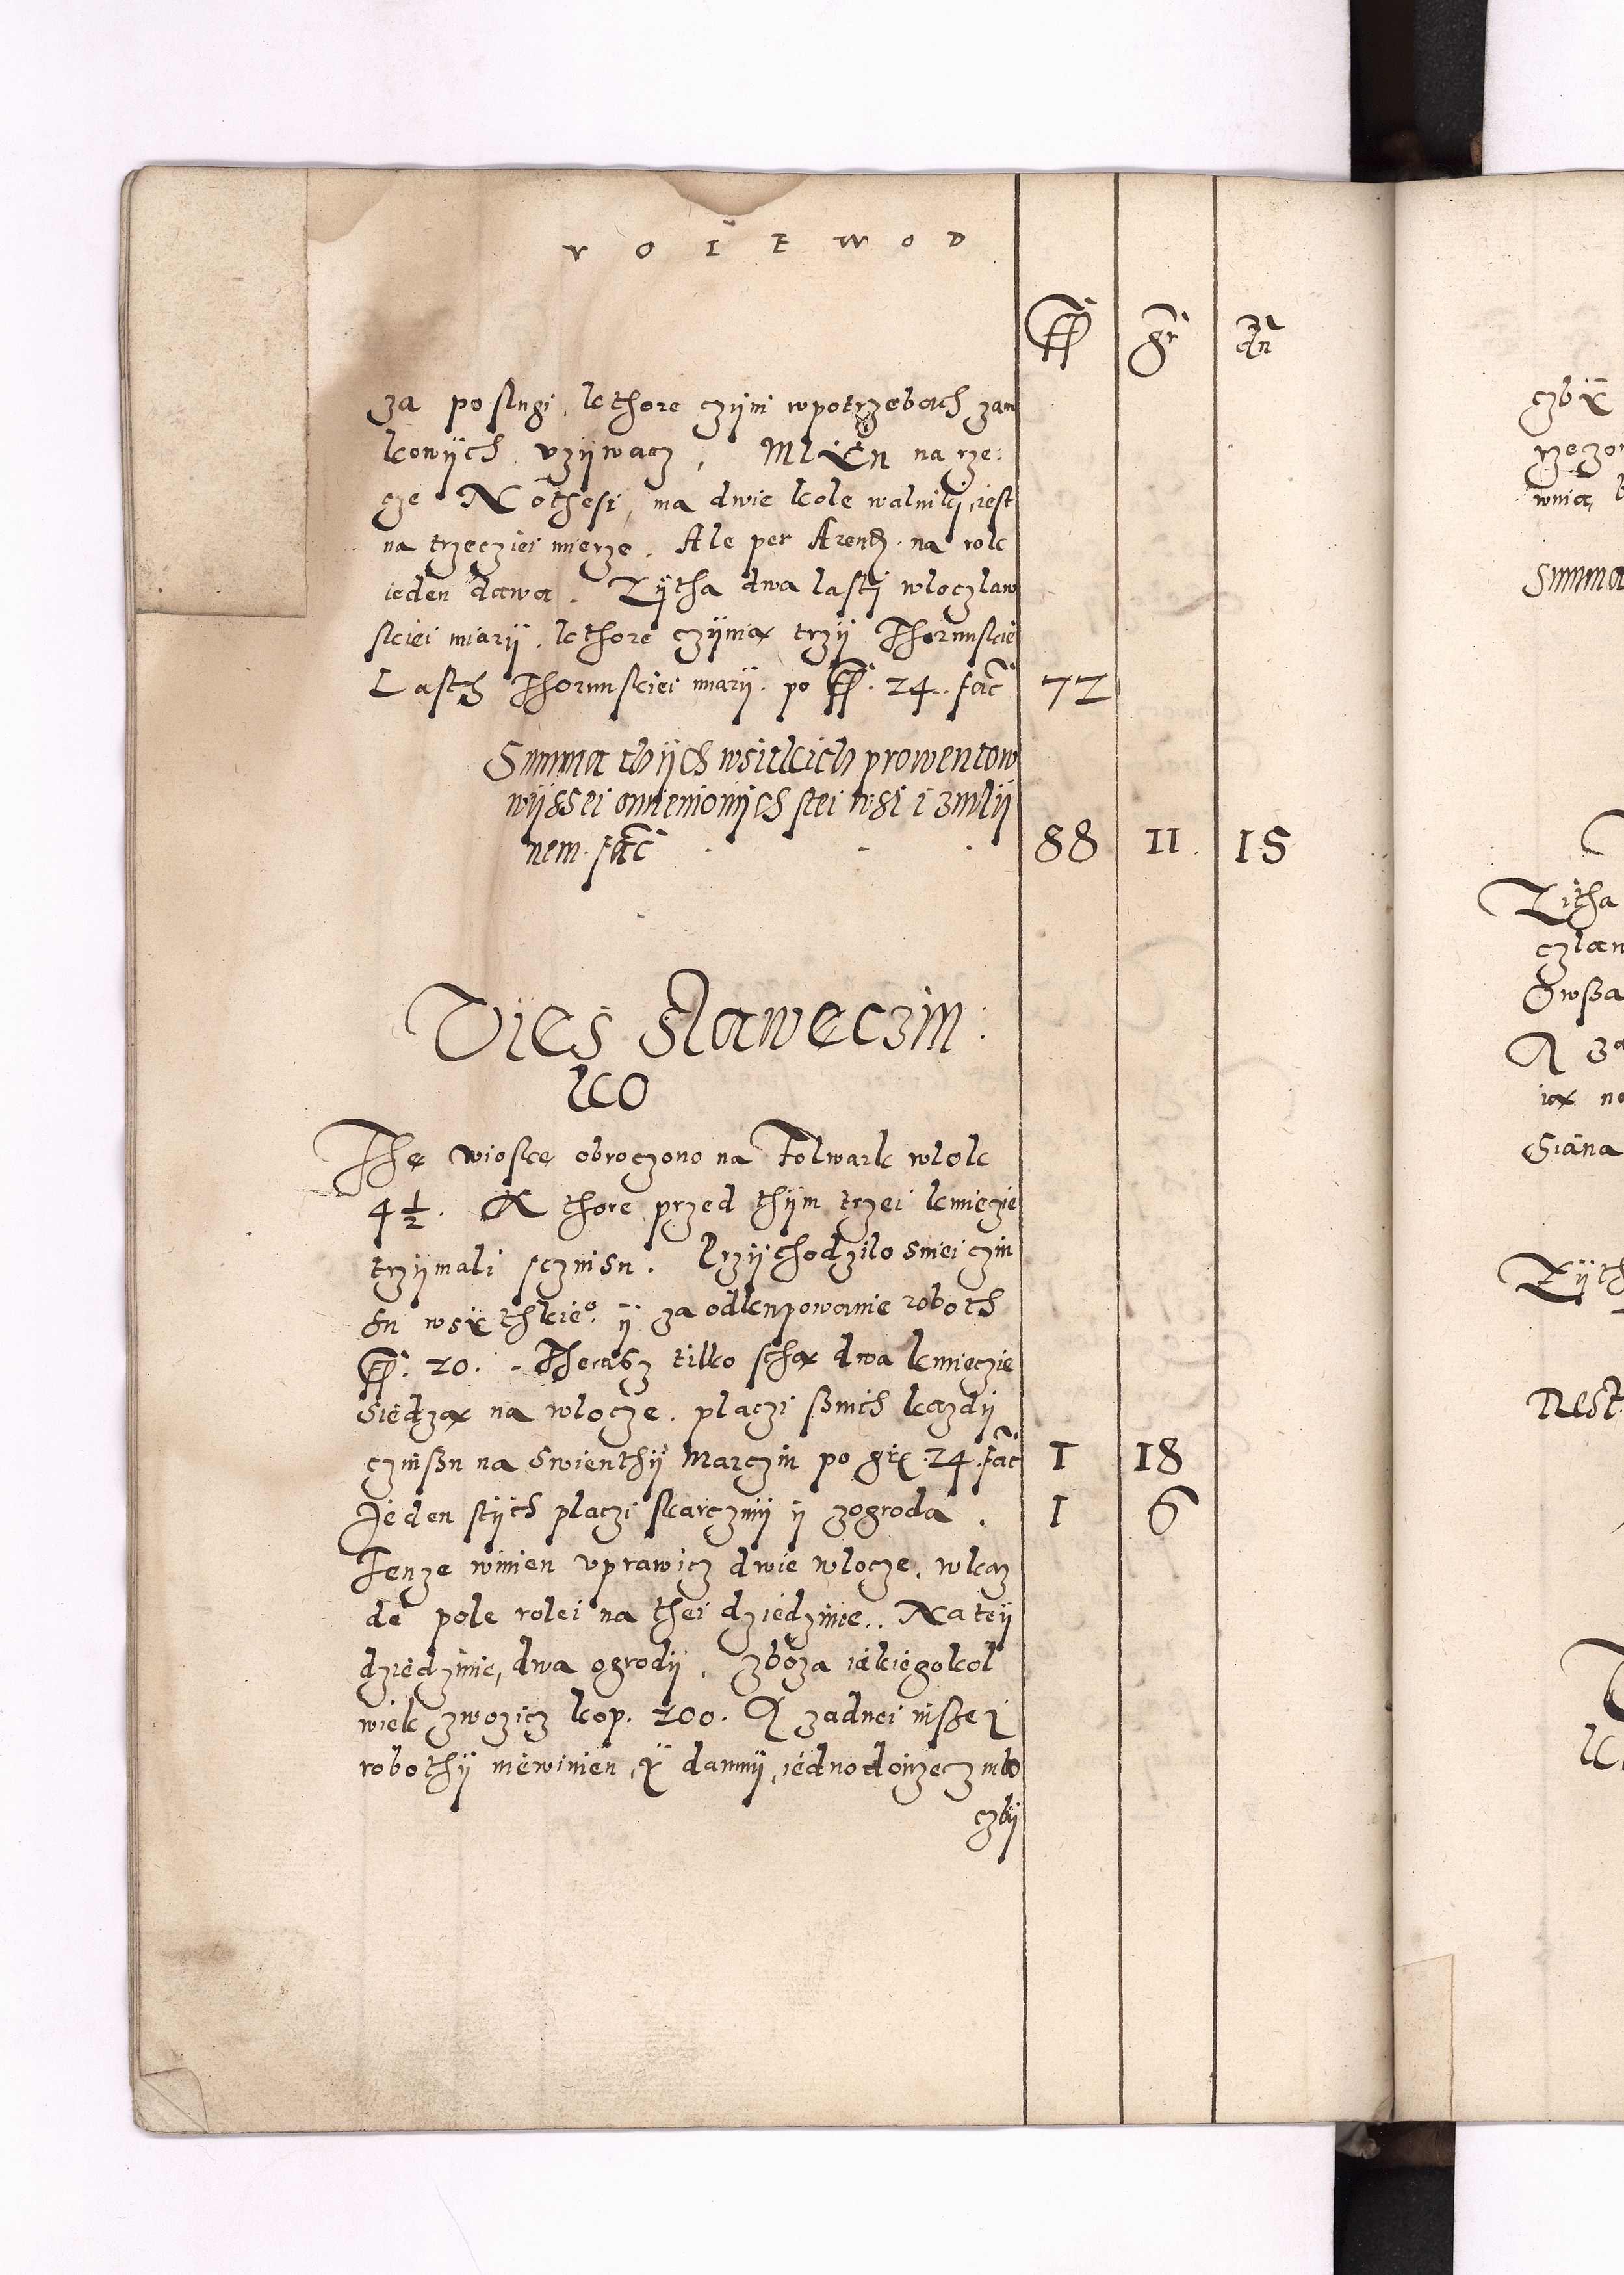 V O I E W O D
fl gr dn
za poslugi, kthore czyni wpotrzebach zam
kowych, vzywacz, Mlyn na rze:
cze Nothesi, ma dwie kole walniki, iest
na trzecziei mierze. Ale per Arend. na rok
ieden dawa. Zytha dwa lasti wloczlaw
skiei miary. kthore czynia trzy Thorunskie
Lasth Thorunskiei miary. po fl. 24. fac 72
Summa thych wsitkich prowentow
wyssei omienionych stei wsi i zmly
nem. fac 88 11 15
Vies slaweczin:
ko
The wioske obroczono na Folwark wlok
4½. Kthore przed thym trzei kmiecie
trzymali sczinsu. Przychodzilo snieiczin
su wsythkieo. y za odkupowanie roboth
fl. 20. Therasz tilko scha dwa kmieczie
siedza na wlocze. placzi snich kazdy
czinszu na swienthy Marczin po gr. 24. fac 1 18
Jeden stych placzi skarczmy y zogroda. 1 6
Tenze winien vprawicz dwie wlocze, wkaz
de pole rolei na thei dziedzinie.. Na tey
dziedzinie, dwa ogrody. zboza iakiegokol
wiek zwozicz kop. 200. A zadnei inszei
robothy niewinien, y danny, iedno dorzecz mlo
czby
czby
rzeczo
wnia
Summa
Zitha
czlaw
Owsa
A za
ia na
Siana
Zyth
Rest